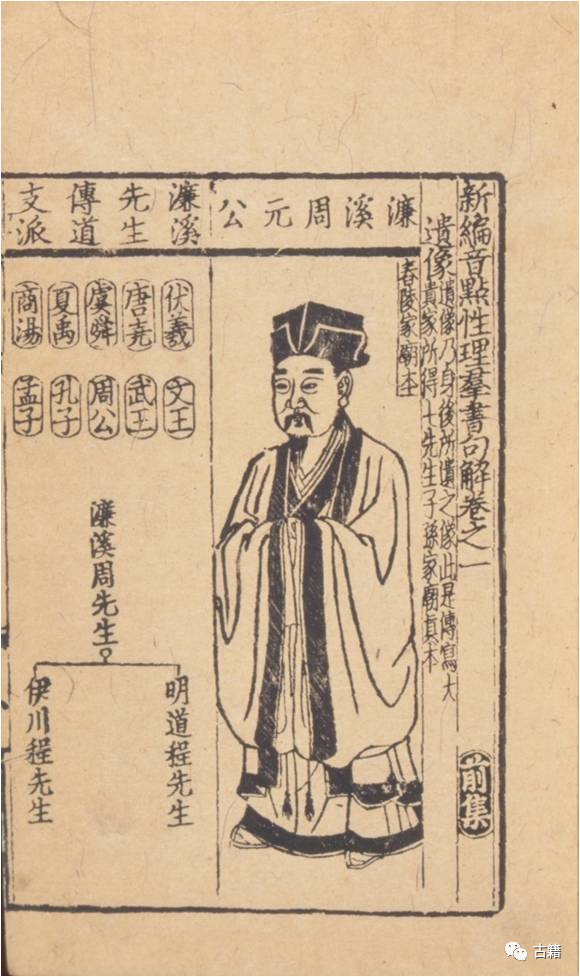 新編音點性理羣書句解卷之一
前集
遺像
遺像乃身後所遺之像此是傳寫大
貴家所得七先生子孫家廟真本
濂溪周元公
舂陵家廟本
濂溪先生傳道支派
伏羲
唐堯
虞舜
夏禹
商湯
文王
武王
周公
孔子
孟子
濂溪周先生
明道程先生
伊川程先生
古籍